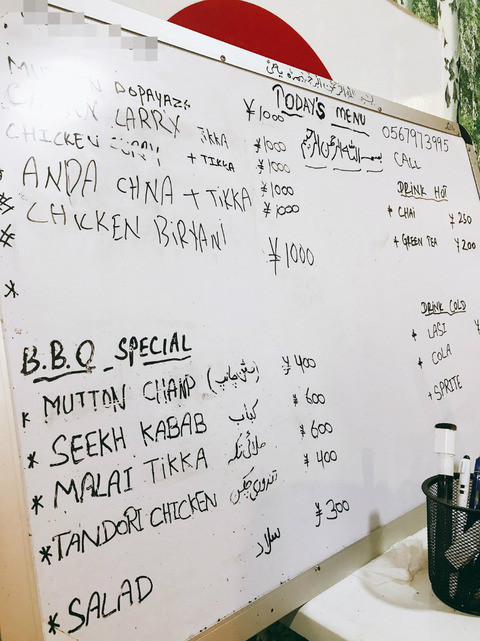 TODAY'S MENU
بسم الله الرحمن الرحيم
05679973995
CALL
DOPAYAZA ¥1000
LARRY TIKKA ¥1000
CHICKEN + TIKKA ¥1000
ANDA CHNA + TIKKA ¥1000
¥1000
CHICKEN BIRYANI ¥1000
*
B.B.Q SPECIAL
* MUTTON CHAND (مٹن چانپ) ¥400
* SEEKH KABAB کباب ¥600
* MALAI TIKKA ملائی تکہ ¥600
* TANDORI CHICKEN تندوری چکن ¥400
* SALAD سلاد ¥300
DRINK HOT
+ CHAI ¥250
+ GREEN TEA ¥200
DRINK COLD
+ LASI ¥
+ COLA
+ SPRITE